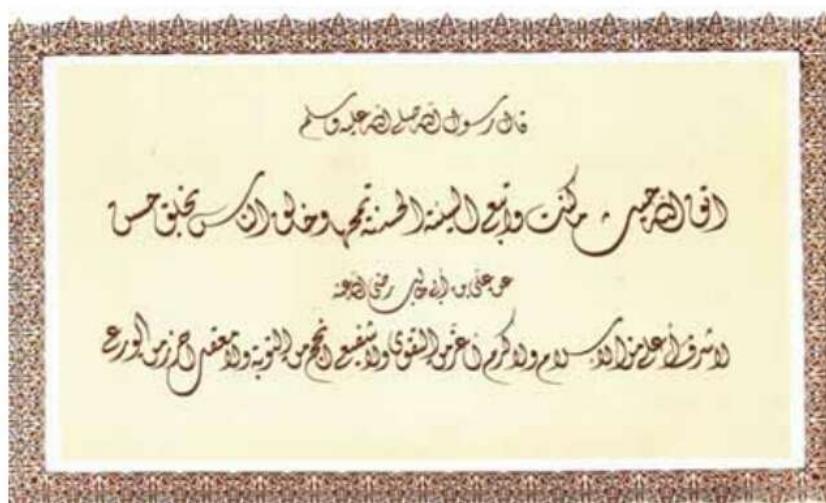 قال رسول الله صلى الله عليه وسلم
اتق الله حيث ما كنت واتبع السيئة الحسنة تمحها وخالق الناس بخلق حسن
عن علي بن أبي طالب رضي الله عنه
لا شرف أعلى من الإسلام ولا كرم أعز من التقوى ولا شفيع أنجح من التوبة ولا معقل أحرز من الورع